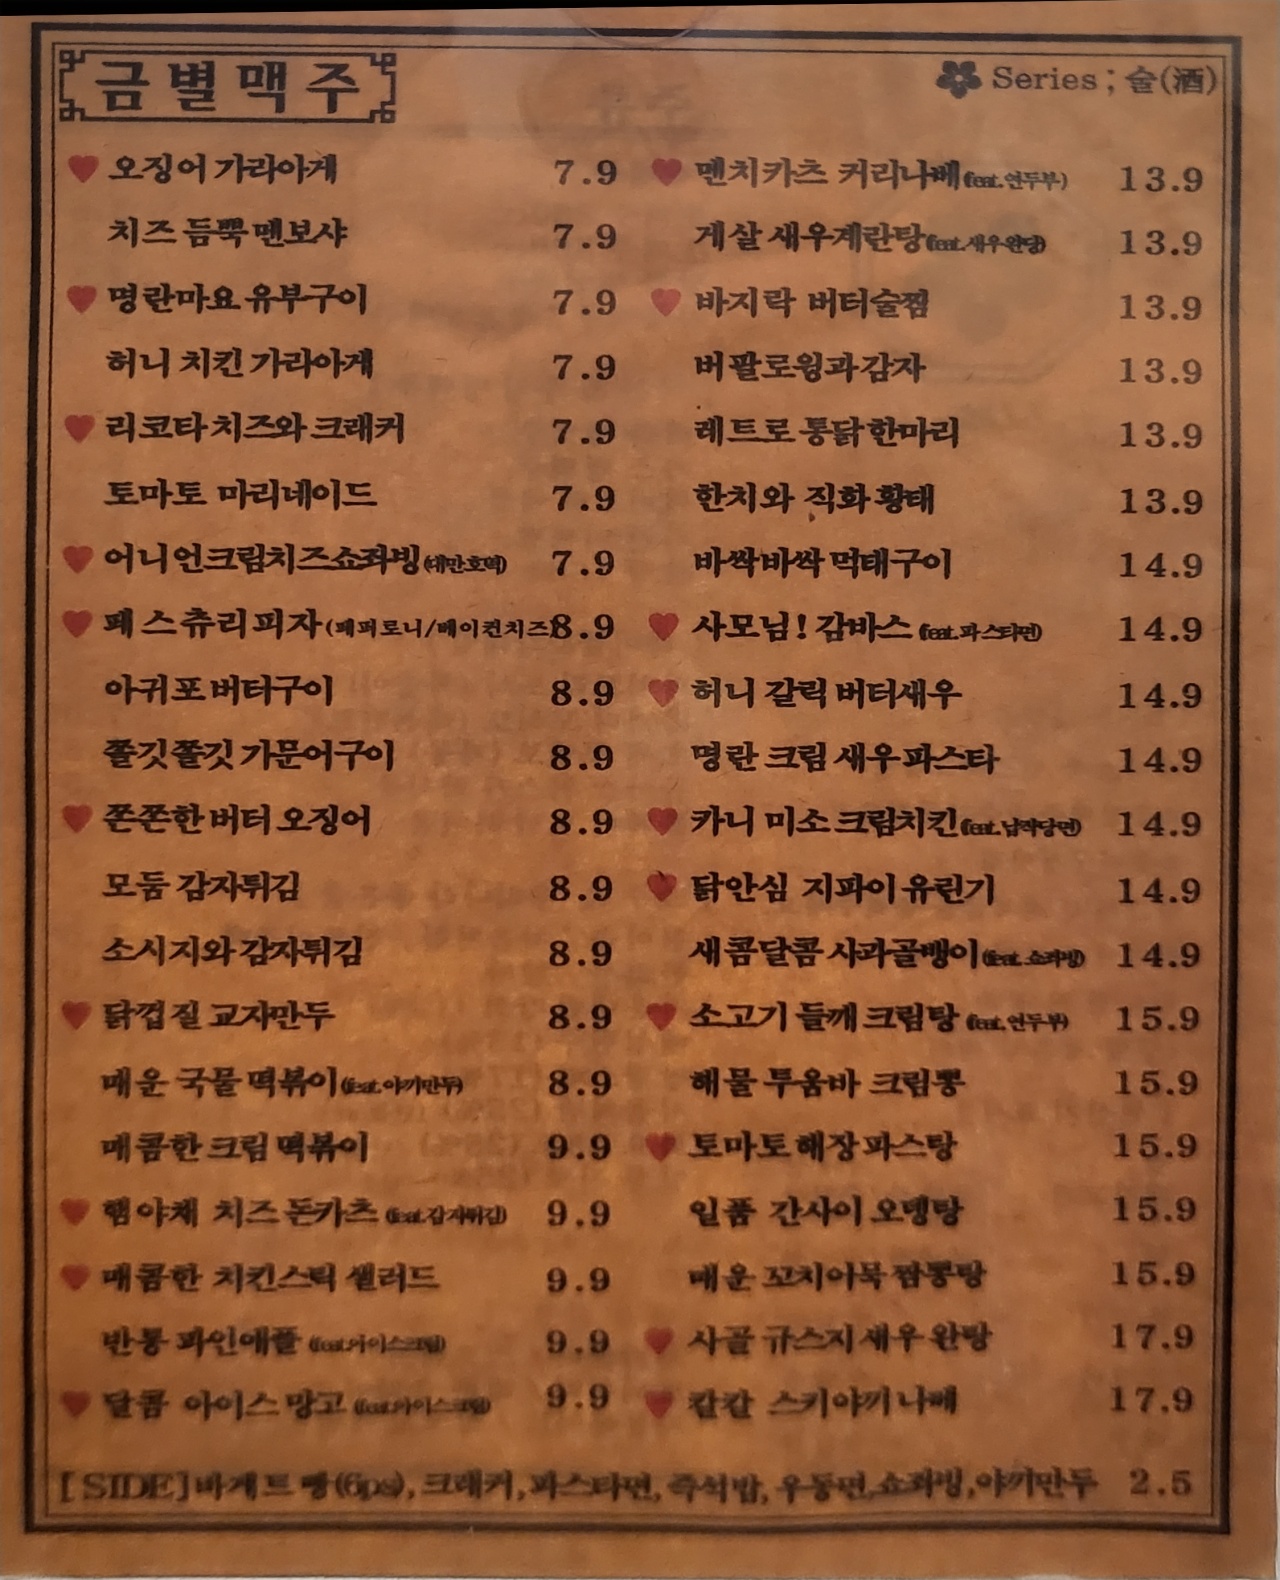 금별맥주
Series ; 술(酒)
오징어 가라아게 7.9
치즈 듬뿍 멘보샤 7.9
명란마요 유부구이 7.9
허니 치킨 가라아게 7.9
리코타 치즈와 크래커 7.9
토마토 마리네이드 7.9
어니언크림치즈쇼좌빙(대만호떡) 7.9
페스츄리피자(페퍼로니/베이컨치즈) 8.9
아귀포 버터구이 8.9
쫄깃쫄깃 가문어구이 8.9
쫀쫀한 버터 오징어 8.9
모둠 감자튀김 8.9
소시지와 감자튀김 8.9
닭껍질 교자만두 8.9
매운 국물 떡볶이(feat.야끼만두) 8.9
매콤한 크림 떡볶이 9.9
햄야채 치즈 돈카츠 (feat.감자튀김) 9.9
매콤한 치킨스틱 샐러드 9.9
반통 파인애플 (feat.아이스크림) 9.9
달콤 아이스 망고 (feat.아이스크림) 9.9
멘치카츠 커리나베(feat.연두부) 13.9
게살 새우계란탕(feat.새우완탕) 13.9
바지락 버터술찜 13.9
버팔로윙과 감자 13.9
레트로 통닭 한마리 13.9
한치와 직화 황태 13.9
바싹바싹 먹태구이 14.9
사모님! 감바스 (feat.파스타면) 14.9
허니 갈릭 버터새우 14.9
명란 크림 새우 파스타 14.9
카니 미소 크림치킨(feat.납작당면) 14.9
닭안심 지파이 유린기 14.9
새콤달콤 사과골뱅이(feat.쇼좌빙) 14.9
소고기 들깨 크림탕 (feat.연두부) 15.9
해물 투움바 크림뽕 15.9
토마토 해장 파스탕 15.9
일품 간사이 오뎅탕 15.9
매운 꼬치어묵 짬뽕탕 15.9
사골 규스지 새우 완탕 17.9
칼칼 스키야끼 나베 17.9
[SIDE] 바게트 빵(6ps), 크래커, 파스타면, 즉석밥, 우동면, 쇼좌빙, 야끼만두 2.5